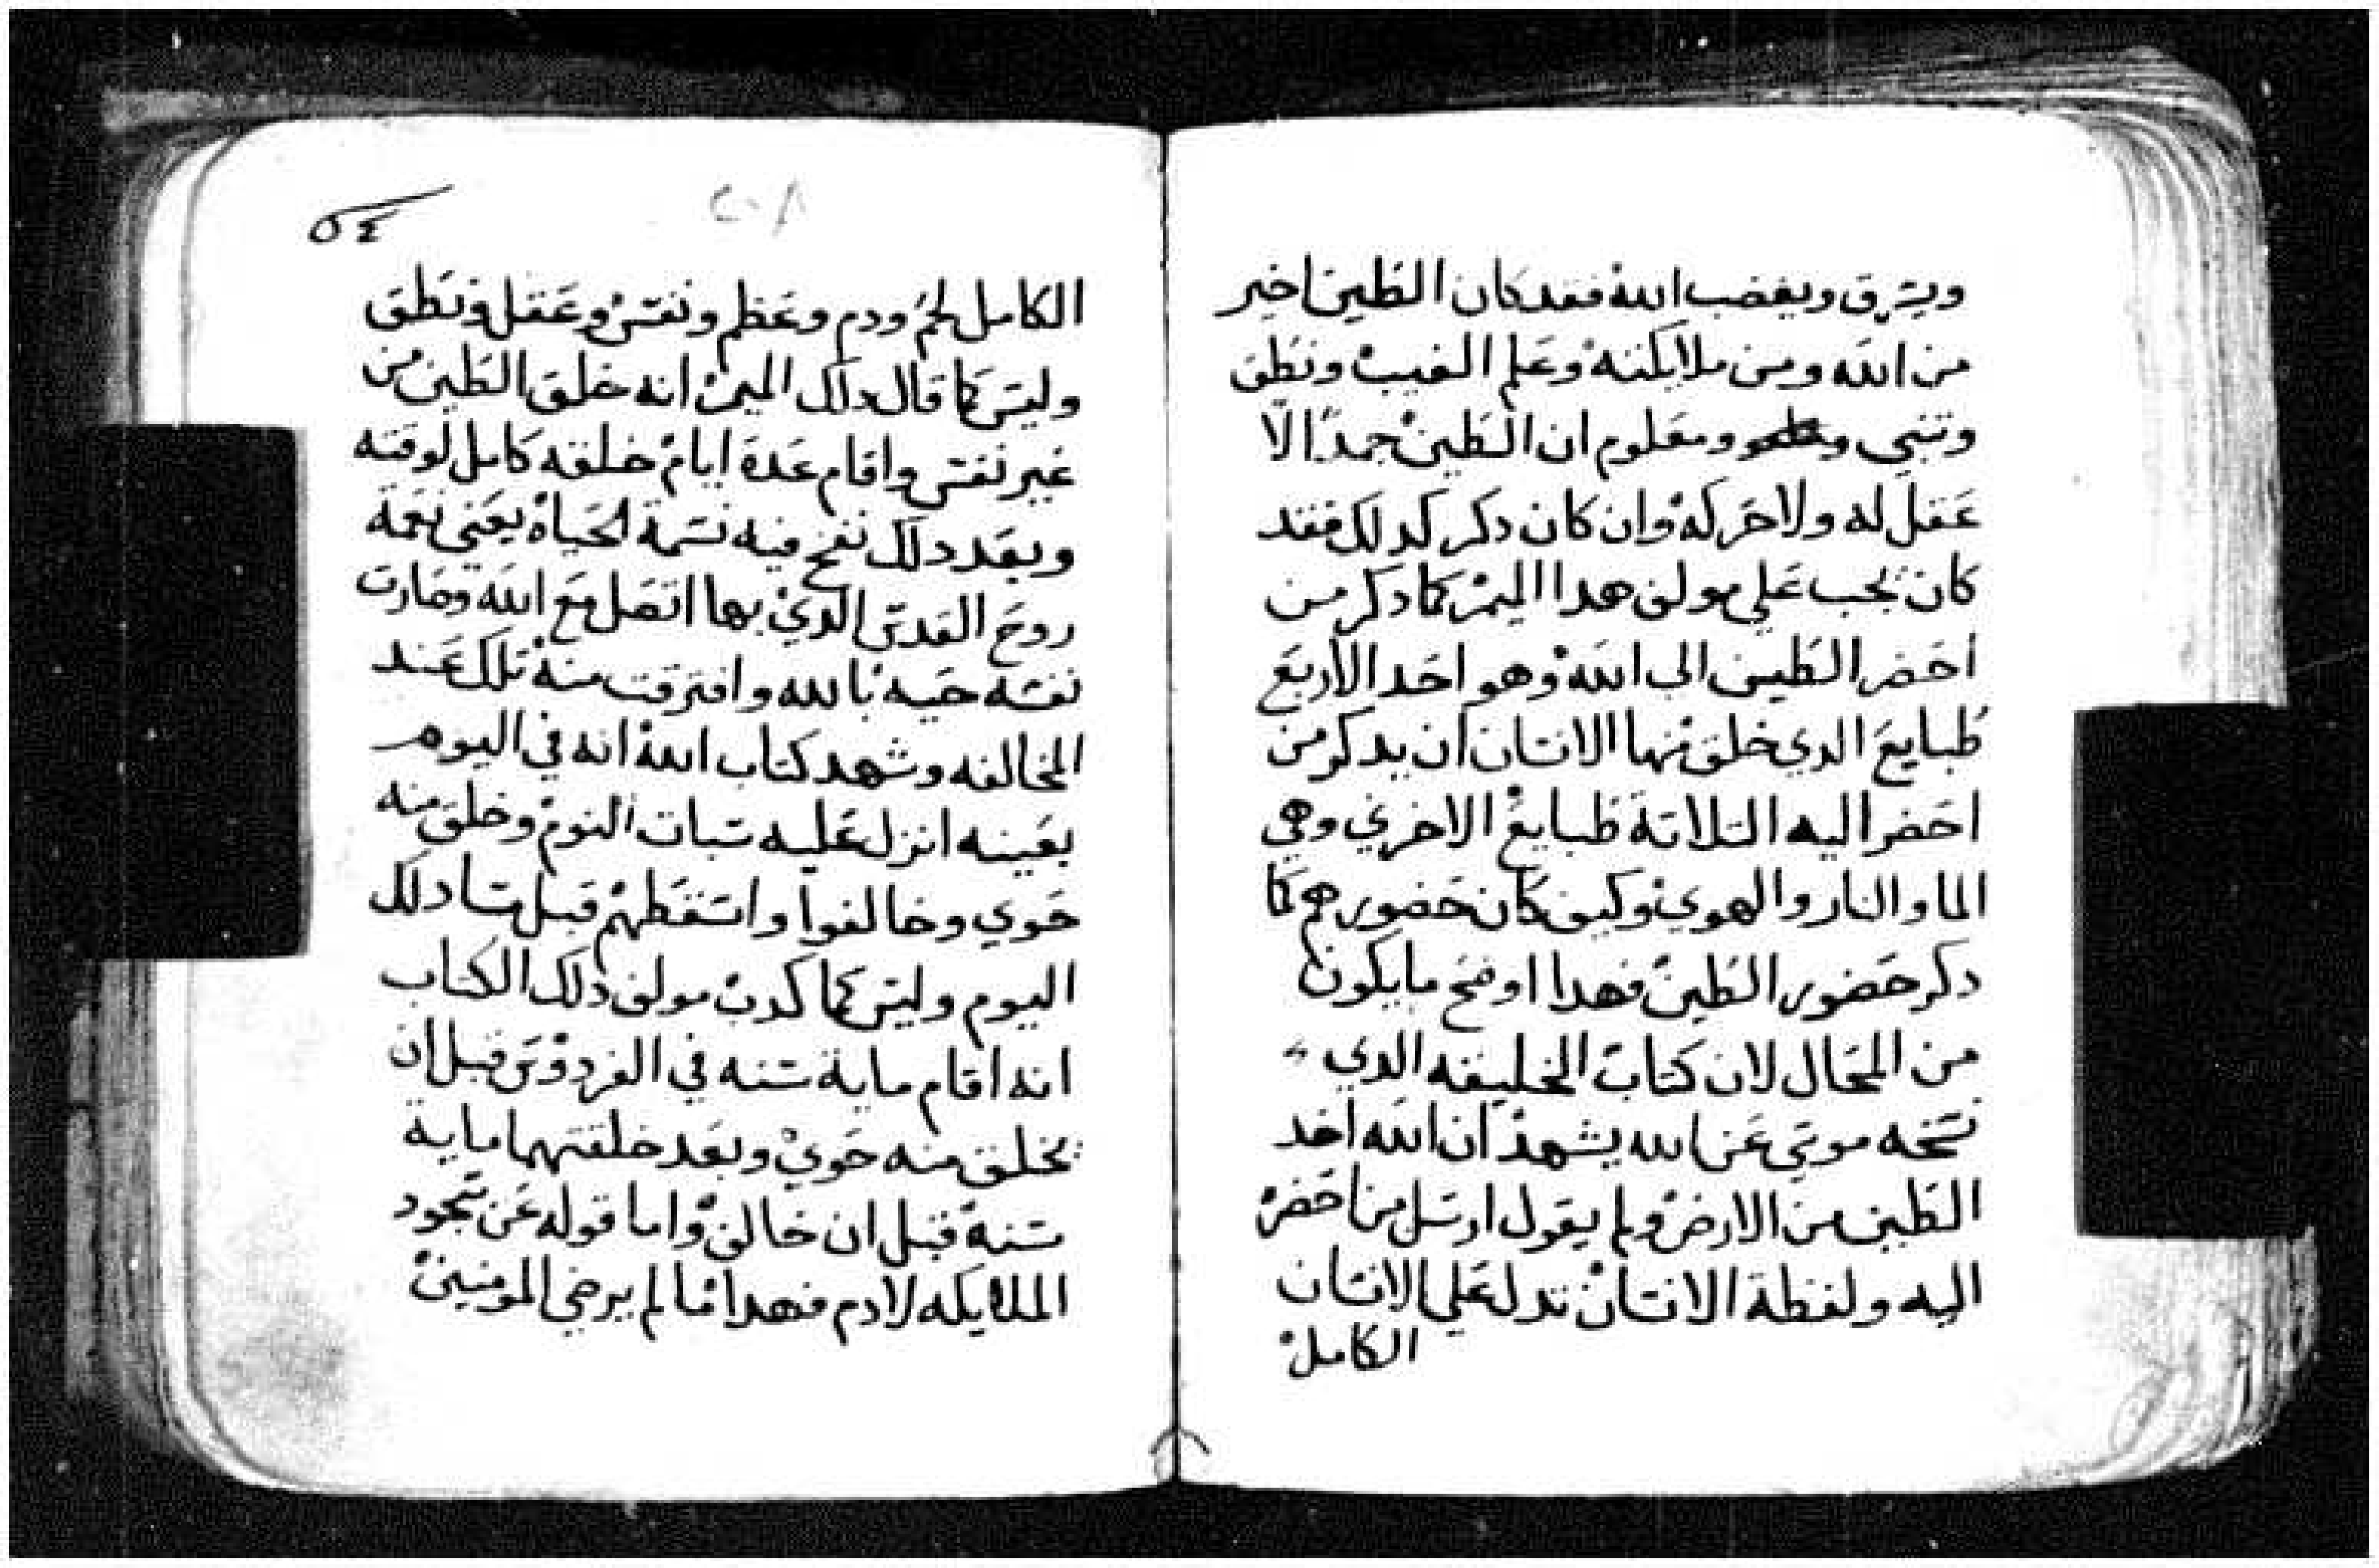 ويسرق ويغضب الله فقد كان الطين اخير
من الله ومن ملايكته وعلم الغيب ونطق
وتنبي ومعلوم ان الطين جمدا لا
عقل له ولا حركه وان كان دكر كدلك فقد
كان يجب علي مولف هدا الميمر كما دكر من
احضر الطين الي الله وهو احد الاربع
طبايع الدي خلق منها الانسان ان يدكر من
احضر اليه التلاتة طبايع الاخري وهي
الما والنار والهوي وكيف كان حضورهم كما
دكر حضور الطين فهدا اوضح ما يكون
من المحال لان كتاب الخليقه الدي
نسخه موسي عن الله يشهد ان الله اخد
الطين من الارض ولم يقول ارسل من احضر
اليه ولفظة الانسان تدل علي الانسان
الكامل
٥٤
٢٠٨
الكامل لحم ودم وعظم ونفس وعقل ونطق
وليس كما قال دلك الميمر انه خلق الطين من
غير نفس واقام عدة ايام خلقه كامل لوقته
وبعد دلك نفخ فيه نسمة الحياه يعني نعمة
روح القدس الدي بها اتصل مع الله وصارت
نفسه حيه بالله وافترقت منه تلك عند
المخالفه وشهد كتاب الله انه في اليوم
بعينه انزل عليه سبات النوم وخلق منه
حوي وخالفوا واسقطهم قبل مسا دلك
اليوم وليس كما كدب مولف دلك الكتاب
انه اقام ماية سنه في الفردوس قبل ان
يخلق منه حوي وبعد خلقتهما ماية
سنه قبل ان خالف واما قوله عن سجود
الملايكه لادم فهدا ما لم يرضي المومنين